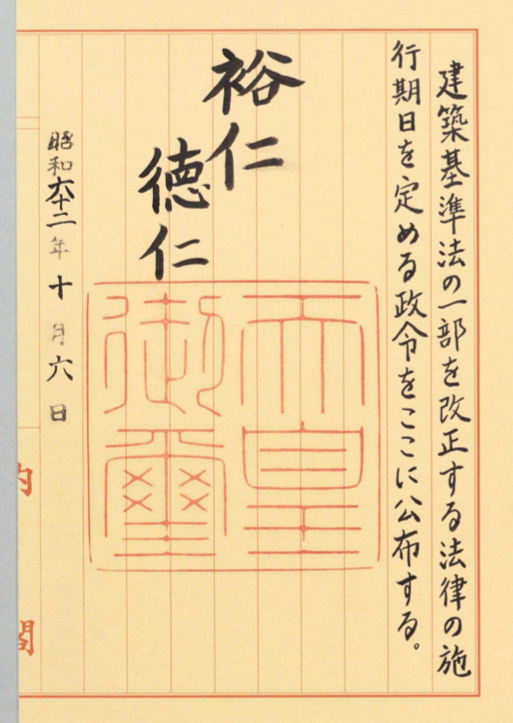 建築基準法の一部を改正する法律の施
行期日を定める政令をここに公布する。
裕仁
徳仁
天皇
御璽
昭和六十二年十月六日
内閣